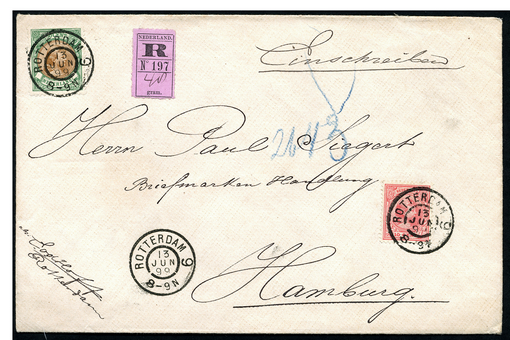 ROTTERDAM 6
13
JUN
99
8-9N
NEDERLAND.
R
Nº 197
40
gram.
Einschreiben
2643
Herrn Paul Siegert
Briefmarken Handlung
ROTTERDAM 6
13
JUN
8-9
ROTTERDAM 6
13
JUN
99
8-9N
Rotterdam
Hamburg.